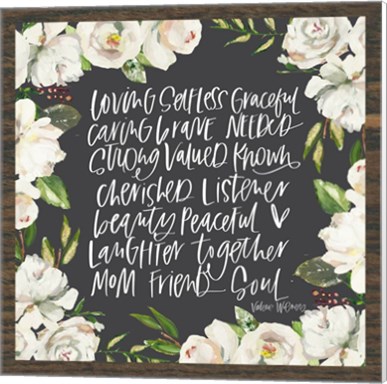 Loving Selfless Graceful
caring brave NEEDED
Strong Valued Known
cherished Listener
beauty Peaceful ♡
Laughter together
MOM Friend Soul
Valerie Wieners